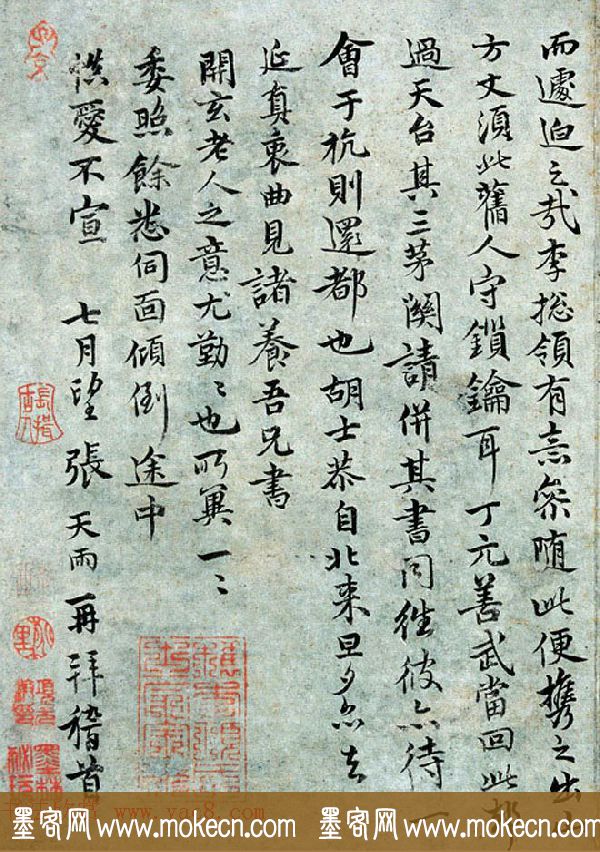 而遽迫之哉李總領有意參隨此便攜之出山
方丈須此舊人守鎖鑰耳丁元善武當回此都
過天台其三茅闕請併其書同往彼亦待一
會于杭則還都也胡士恭自北來早夕亦去
延真衷曲見諸養吾兄書
開玄老人之意尤勤〻也所冀一〻
委照餘悉伺面傾倒途中
惟愛不宣 七月望張天雨再拜稽首
墨客网 www.mokecn.com 墨客网 www.mokecn.com